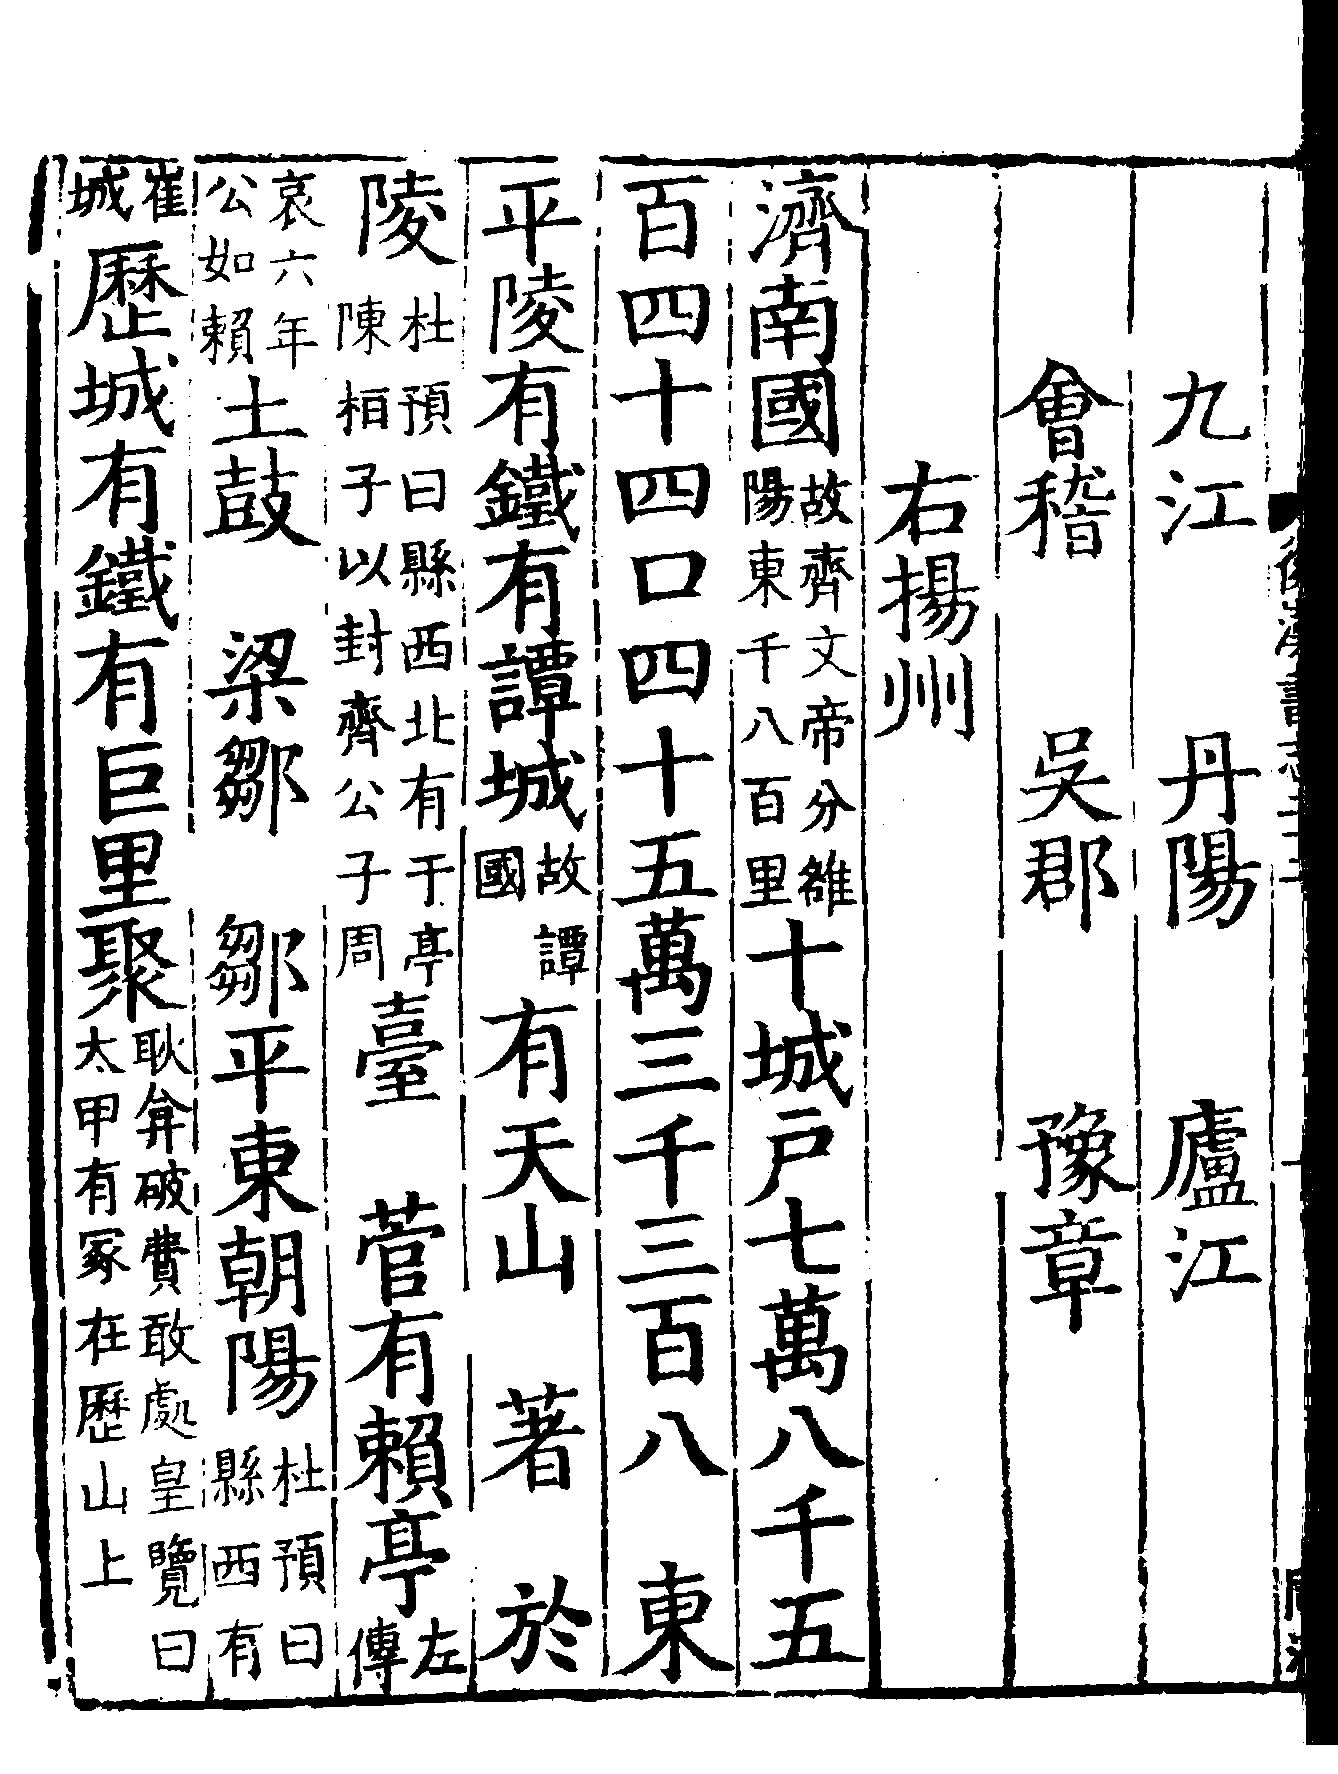 九江　丹陽　廬江
會稽　吳郡　豫章
右揚州
濟南國故齊文帝分雒陽東千八百里十城戶七萬八千五
百四十四口四十五萬三千三百八　東
平陵有鐵有譚城故譚國有天山　著　於
陵杜預曰縣西北有于亭陳桓子以封齊公子周臺　菅有賴亭左傳
哀六年公如賴土鼓　梁鄒　鄒平東朝陽杜預曰縣西有
崔城歷城有鐵有巨里聚耿弇破費敢處皇覽曰太甲有冢在歷山上